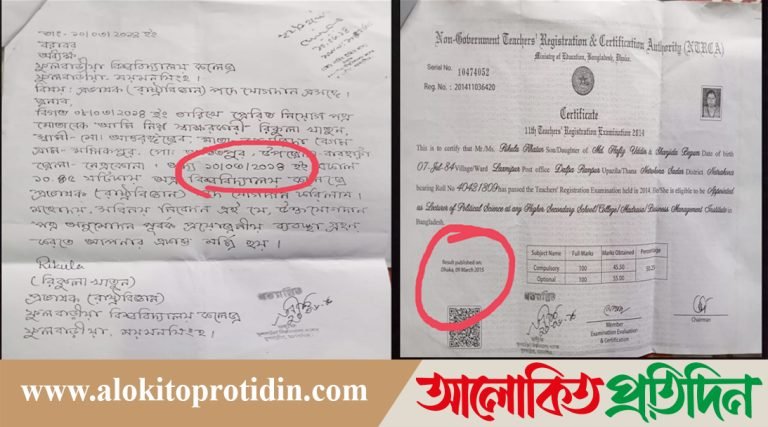 তাং ২০/০৩/২০১৪ ইং
বরাবর
অধ্যক্ষ
ফুলবাড়ীয়া বিশ্ববিদ্যালয় কলেজ
ফুলবাড়ীয়া, ময়মনসিংহ।
বিষয়: প্রভাষক (রাষ্ট্রবিজ্ঞান) পদে যোগদান প্রসঙ্গে।
জনাব,
ইং তারিখে প্রেরিত নিয়োগ পত্র
মোতাবেক আমি নিম্ন স্বাক্ষরকারী রিকুলা খাতুন,
জেলা- নেত্রকোনা। ২০/০৩/২০১৪ ইং
১০.৪৫ ঘটিকায় অত্র বিশ্ববিদ্যালয় কলেজে
প্রভাষক (রাষ্ট্রবিজ্ঞান) পদে যোগদান করিলাম।
মহোদয়, সবিনয় নিবেদন এই যে, যোগদান
পত্র অনুমোদন পূর্বক প্রয়োজনীয় ব্যবস্থা গ্রহণ
করতে আপনার মর্জি হয়।
Rikula
(রিকুলা খাতুন)
প্রভাষক (রাষ্ট্রবিজ্ঞান)
ফুলবাড়ীয়া বিশ্ববিদ্যালয় কলেজ
ফুলবাড়ীয়া, ময়মনসিংহ।
Non-Government Teachers' Registration & Certification Authority (NTRCA)
Ministry of Education, Bangladesh, Dhaka.
Serial No. 10474052
Reg. No. : 201411036420
Certificate
11th Teachers' Registration Examination 2014
This is to certify that Mr./Ms. Rikula Khatun Son/Daughter of Md. Hafiz Uddin & Shazida Begum Date of birth
07-Jul-84 Village/Ward Laxmpur Post office Datpa Rampur Upazila/Thana Netrokona Sadar District Netrokona
bearing Roll No 40421309 has passed the Teachers' Registration Examination held in 2014. He/She is eligible to be Appointed
as Lecturer of Political Science at any Higher Secondary School/College/Madrasa/Business Management Institute in
Bangladesh.
Result published on:
Dhaka, 09 March 2015
Subject Name Full Marks Marks Obtained Percentage
Compulsory 100 45.50 50.25
Optional 100 55.00
Member
Examination Evaluation
& Certification
Chairman
www.alokitoprotidin.com
আলোকিত প্রতিদিন